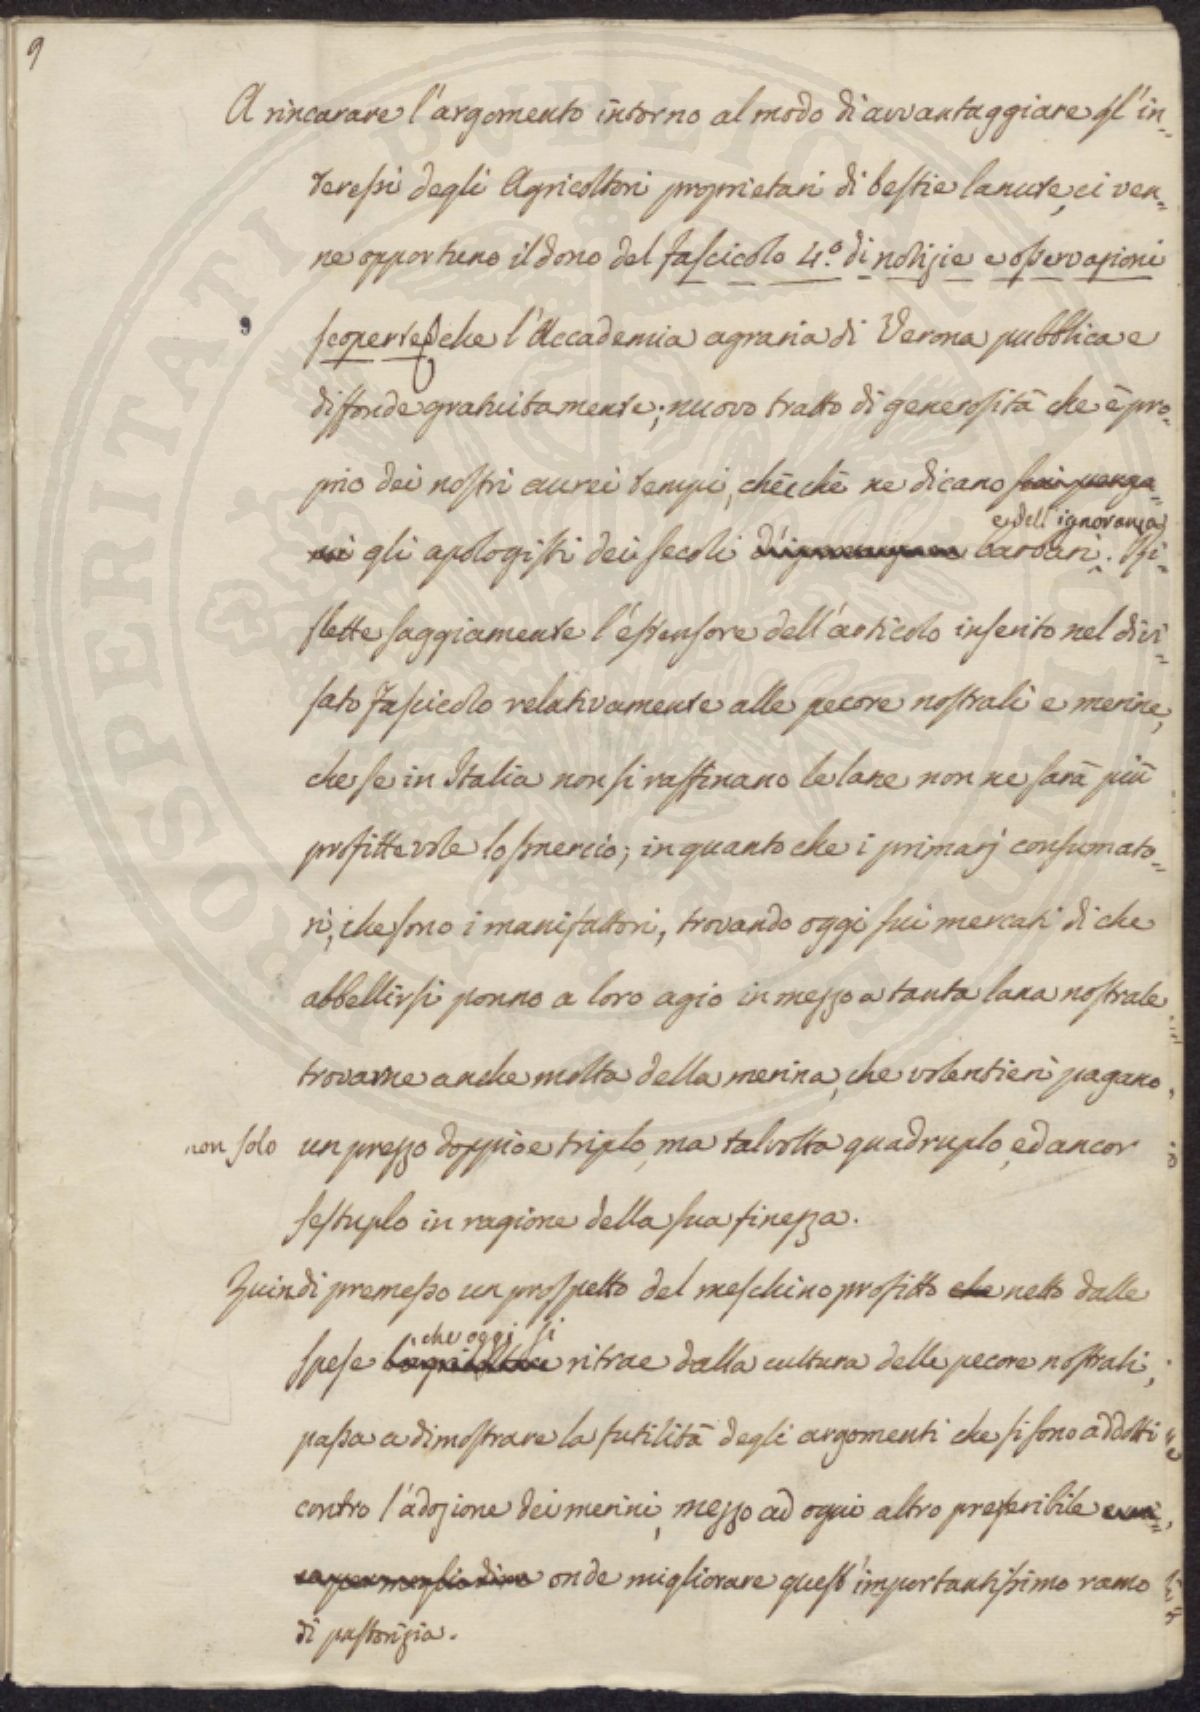 9
A rincarare l'argomento intorno al modo di avvantaggiare gl'in=
teressi degli Agricoltori proprietari di bestie lanute, ci ven=
ne opportuno il dono del fascicolo 4.° di notizie e osservazioni
scoperte che l'Accademia agraria di Verona pubblica e
diffonde gratuitamente; nuovo tratto di generosità che è pro=
prio dei nostri aurei tempi, chèchè ne dicano
e dell'ignoranza
gli apologisti dei secoli barbari. Ri=
flette saggiamente l'estensore dell'articolo inserito nel divi=
sato fascicolo relativamente alle pecore nostrali e merine,
che se in Italia non si raffinano le lane non ne sarà più
profittevole lo smercio; in quanto che i primarj consumato=
ri, che sono i manifattori, trovando oggi sui mercati di che
abbellirsi ponno a loro agio in mezzo a tanta lana nostrale
trovarne anche molta della merina, che volentieri pagano
non solo un prezzo doppio e triplo, ma talvolta quadruplo, ed ancor
sestuplo in ragione della sua finezza.
Quindi premesso un prospetto del meschino profitto che netto dalle
che oggi si
spese ritrae dalla cultura delle pecore nostrali,
passa a dimostrare la futilità degli argomenti che si sono addotti
contro l'adozione dei merini, mezzo ad ogni altro preferibile
onde migliorare quest'importantissimo ramo
di pastorizia.